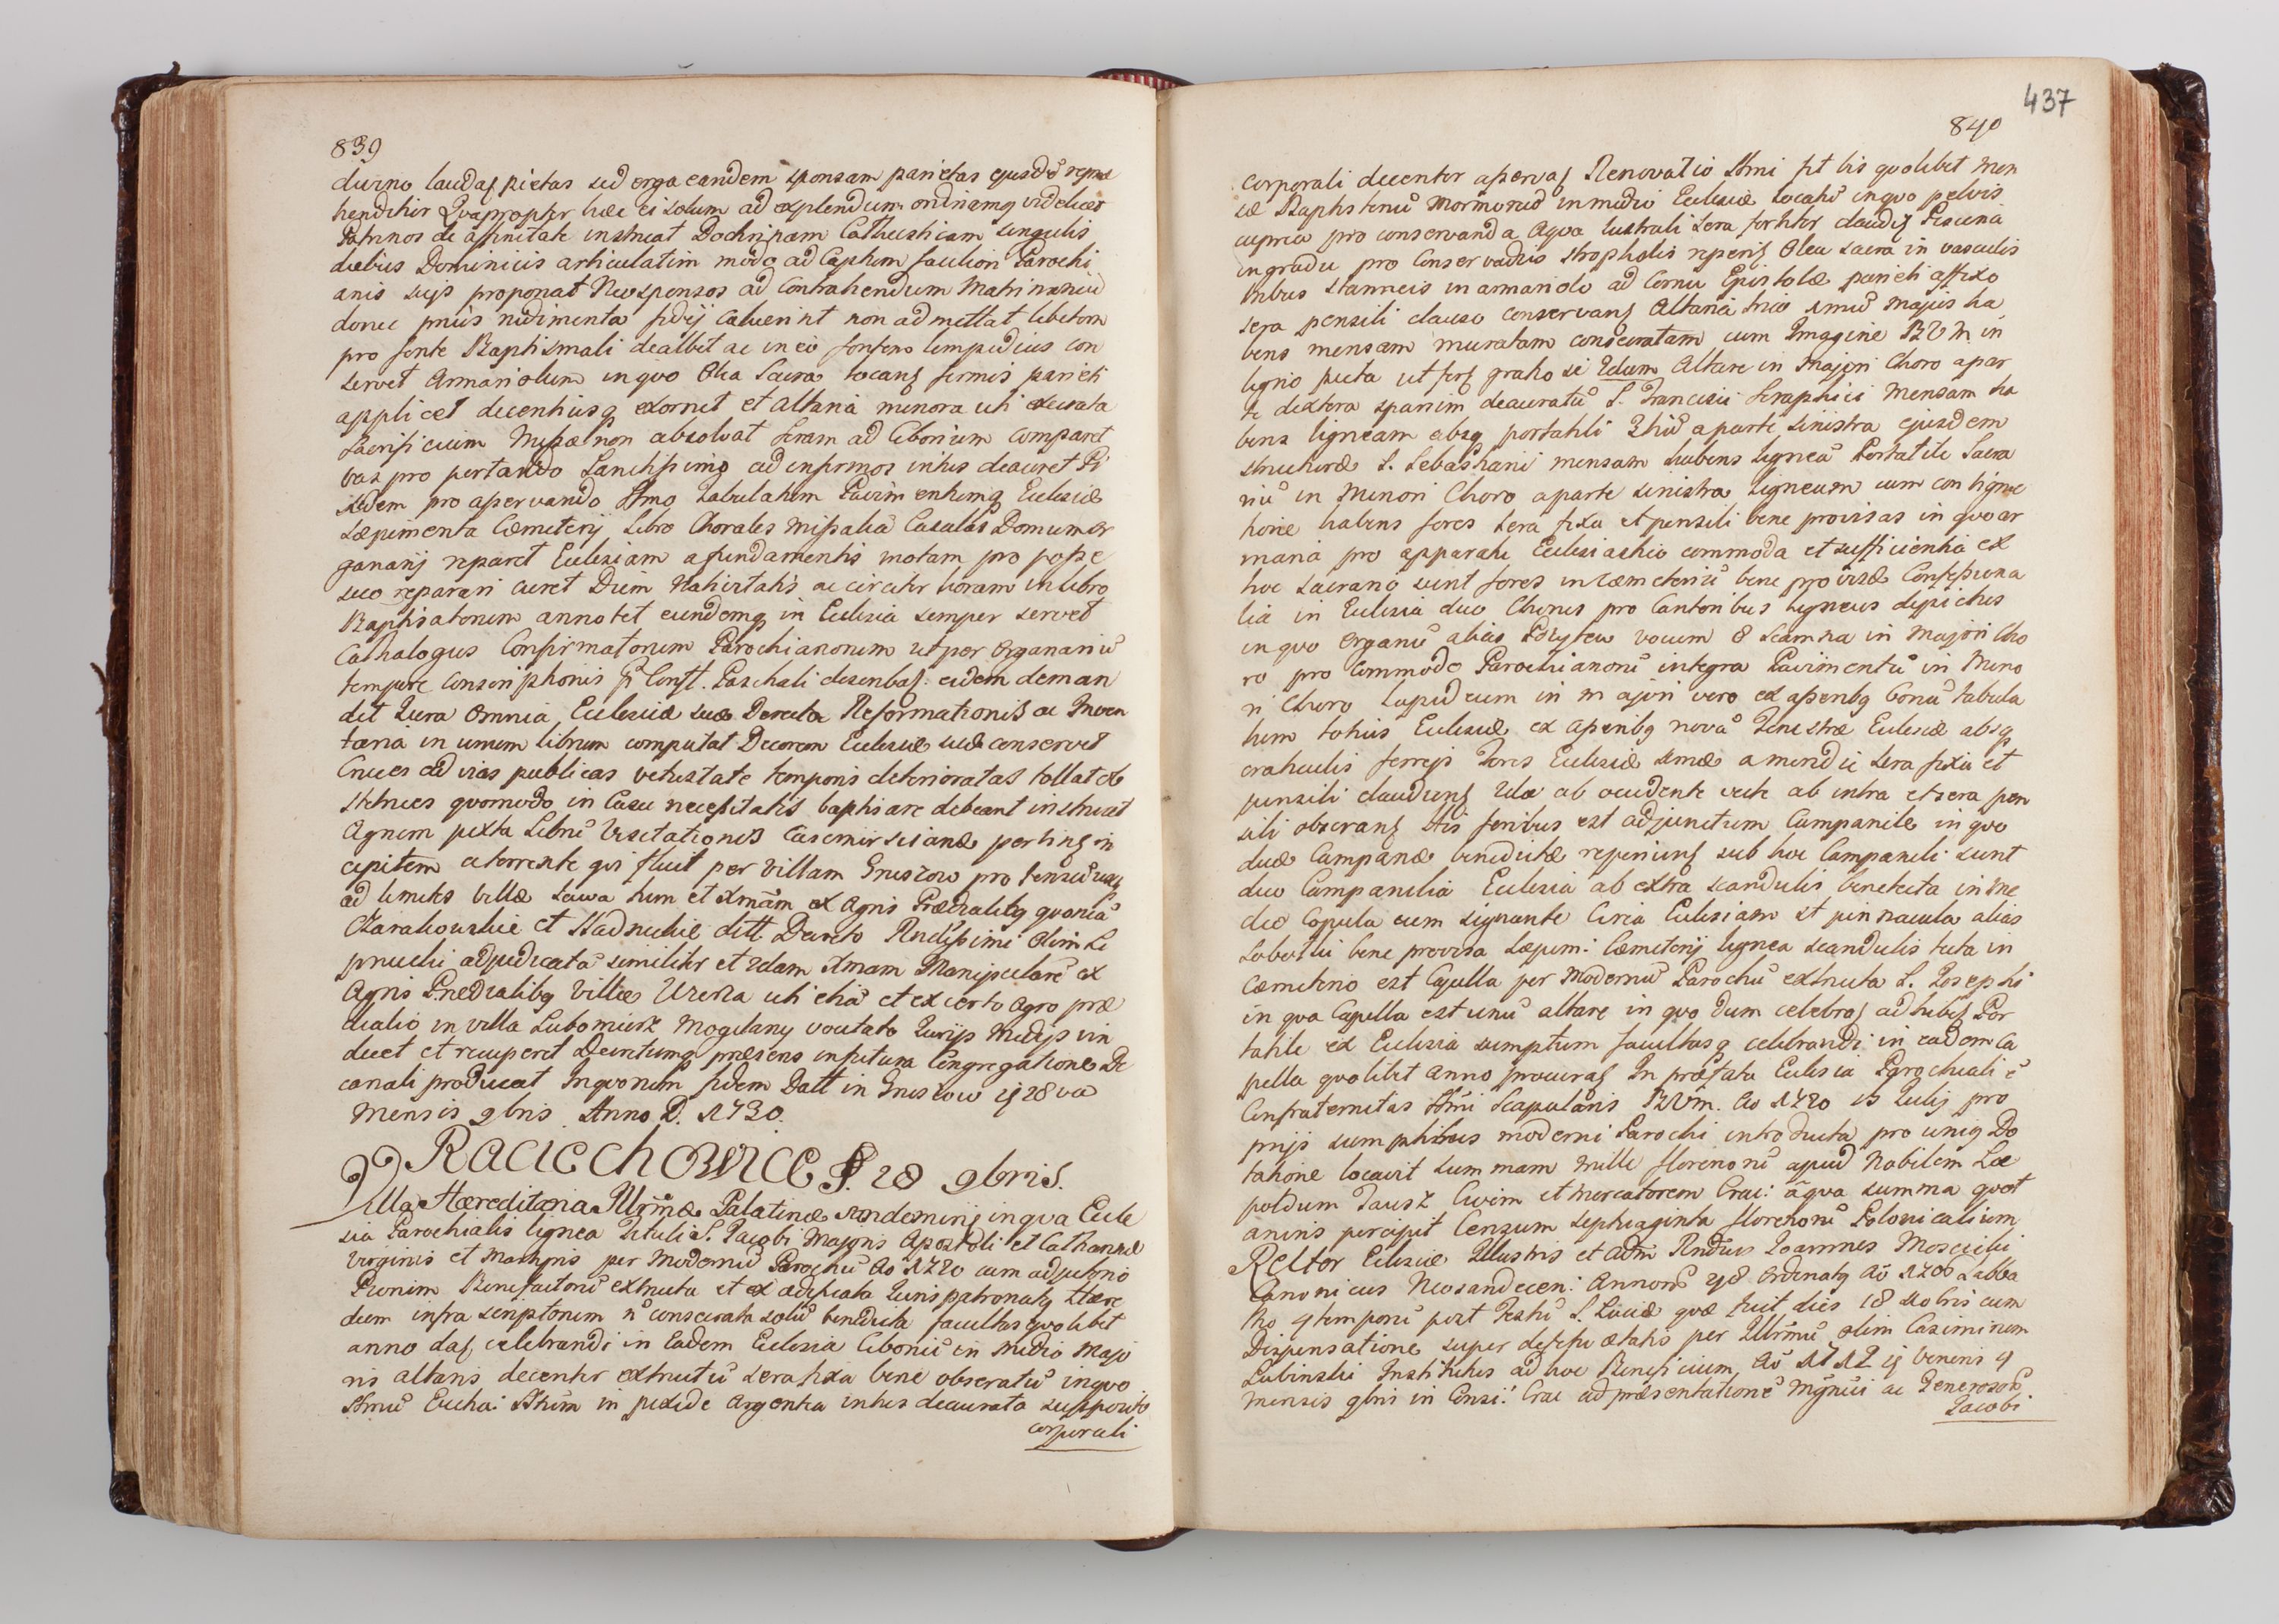 839
divino laudaſ pietas sed erga eandem sponsam parietas ejusdē repre
henditur Quapropter hæc ei solum ad explendum ordinamq videlicet
Patrinos de affinitate instruat Doctrinam Catheisticam singulis
diebus Dominicis articulatim modo ad Captum faciliori Parochi
anis suijs proponat Neosponsos ad Contrahendum Matrimoniū
donec prius rudimenta fidij caluerint non admittat libetom
pro fonte Baptismali dealbet ac in eo fonteno limpidius con
servet Armariolum in quo Olea Sacra locanſ firmis parieti
applicet decentiusq exornet et Altaria minora uti execrata
Sacrificium Missæ non absolvat Seram ad Ciborium Comparet
vas pro portando Sanctissimo ad infirmos intus deauret Pi
xidem pro aservando Ssmo Tabulatum Pavim entumq Ecclesiæ
Sæpimenta Cæmeterij Libro Chorales Missalia Casulas Domum or
ganarij reparet Ecclesiam a fundamentis motam pro posse
suo reparari curet Diem Nativitatis ac circiter horam in libro
Baptisatorum annotet eundemq in Ecclesia semper servet
Cathalogus Confirmatorum Parochianorum ut per Organariū
tempore conscriphonis pr Const. Paschali describaſ eidem deman
det Iura Omnia Ecclesiæ suæ Decreta Reformationis ac Inven
taria in unum librum computat Decorem Ecclesiæ suæ conservet
Cruces ad vias publicas vetustate temporis deterioratas tollat ob
stetrices quomodo in Casu necessitatis baptisare debeant instruat
Agrum juxta Librū Visitationis Casimirscianæ pertinſ in
cipitem a torrente qui fluit per Villam Gruszow pro
ad limites villæ Sawa tum et Xmam ex Agris Prædialibq quoniā
Czarakowskie et Stadnickie ditt Decreto Rndissimi Olim Li
pnucki adjudicatā similiter et 2dam Xmam Manipularē ex
Agris Prædialibq Villæ Wierzba uti etiā et ex certo Agro præ
dialio in villa Lubomierz Mogilany vocitato Iurijs Medijs vin
dicet et recuperet Decretumq præsens in futura Congregatione De
canali producat In quorum fidem Datt in Gruszow ig 28 va
mensis 9bris Anno D. 1730.
Raciechowice P. 28 9bris.
Villa Hæreditaria Illrmæ Palatinæ Sandomirij in qua Eccle
sia Parochialis lignea Tituli S. Jacobi Majoris Apostoli et Catharinæ
Virginis et Martyris per Modernū Parochū Ao 1720 cum adjutorio
Piorum Benefactorū extructa et ex ædificata Iuris patronatq Hære
dum infra scriptorum n̄ consecrata solū benedicta facultas quolibet
anno daſ celebrandi in Eadem Ecclesia Ciboriū in Medio Majo
ris altaris decenter extructū sera fixa bene obseratū in quo
Ssmū Eucha: Sttūm in pixide argentea intus deaurata supposito
corporali
437
840
corporali decenter aservaſ Renovatio Ssmi fit bis quolibet men
se Baptisteriū Mormoreū in medio Ecclesiæ locatū in quo pelvis
cuprea pro conservanda Aqva lustrali sera fortiter claudiſ Piscina
in gradu pro Conservandis stropholis reperiſ Olea sacra in vasculis
tribus stanneis in armariolo ad Cornu Epistolæ parieti affixo
sera pensili clauso conservanſ Altaria trio simū majus ha
bens mensam muratam consecratam cum Imagine BVM in
ligno picta ut ferſ gratiosi 2dum Altare in Majori Choro apar
te dextera sparsim deauratū S. Francisci Seraphici Mensam ha
bens ligneam absq portatili 3tiū aparte sinistra ejusdem
structuræ S. Sebastiani mensam habens ligneā Portatile Sacra
riū in Minori Choro aparte sinistra ligneum cum contigna
tione habens fores sera fixa et pensili bene provisas in quo ar
maria pro apparatu Ecclesiastico commoda et sufficientia ex
hoc sacrario sunt fores in Cæmeteriū bene provisæ Confessiona
lia in Ecclesia duo Chorus pro Cantoribus Ligneus depictus
in quo Organū alias Pozytew vocum 8 Scamna in Majori Cho
ro pro Commodo Parochianorū integra Pavimentū in Mino
ri Choro Lapideum in majori vero ex aßeribq Bonū tabula
tum totius Ecclesiæ ex aßeribq novū Fenestræ Ecclesiæ absq
craticulis ferreis Fores Ecclesiæ simæ a meridie sera fixa et
pensili claudunſ 2dæ ab occidente vecte ab intra et sera pen
sili obseranſ Stis foribus est adjunctum Campanile in quo
duæ Campanæ benedictæ reperiunſ sub hoc Campanili sunt
duo Campanilia Ecclesia ab extra scandulis bene tecta in me
dio Copula cum signante Circa Ecclesiam st pinnacula alias
Sobotki bene provisa Sæpim: Cæmeterij lignea scandulis tecta in
Cæmeterio est Capella per Modernū Parochū extructa S. Josephi
in qua Capella est unū altare in quo dum celebraſ adhibeſ Por
tatile ex Ecclesia sumptum facultasq celebrandi in eadem Ca
pella quolibet anno procuraſ In præfata Ecclesia Parochiali ē
Confraternitas Ssmi Scapularis BVM. Ao 1720 15 Iulij pro
prijs sumptibus moderni Parochi introducta pro cuiq Do
tatione locavit Summam mille florenorū apud Nobilem Leo
poldum Tausz Civem et Mercatorem Crac: a qua summa quot
annis percipit Censum septuaginta florenorū Polonicalium
Rector Ecclesiæ Illustris et Adm Rndus Joannes Moscicki
Canonicus Neosandecen: Annorū 48 Ordinatq Ao 1706 Sabba
tho 4temporū post Festū S. Luciæ quæ fuit dies 18 Xbris cum
Dispensatione super defectu ætatis per Illrmū olim Casimirum
Lubinski Institutus ad hoc Beneficium Ao 1712 ig Veneris 4
mensis 9bris in Consi: Crac ad præsentationē Mgnici ac Generosorū
Jacobi